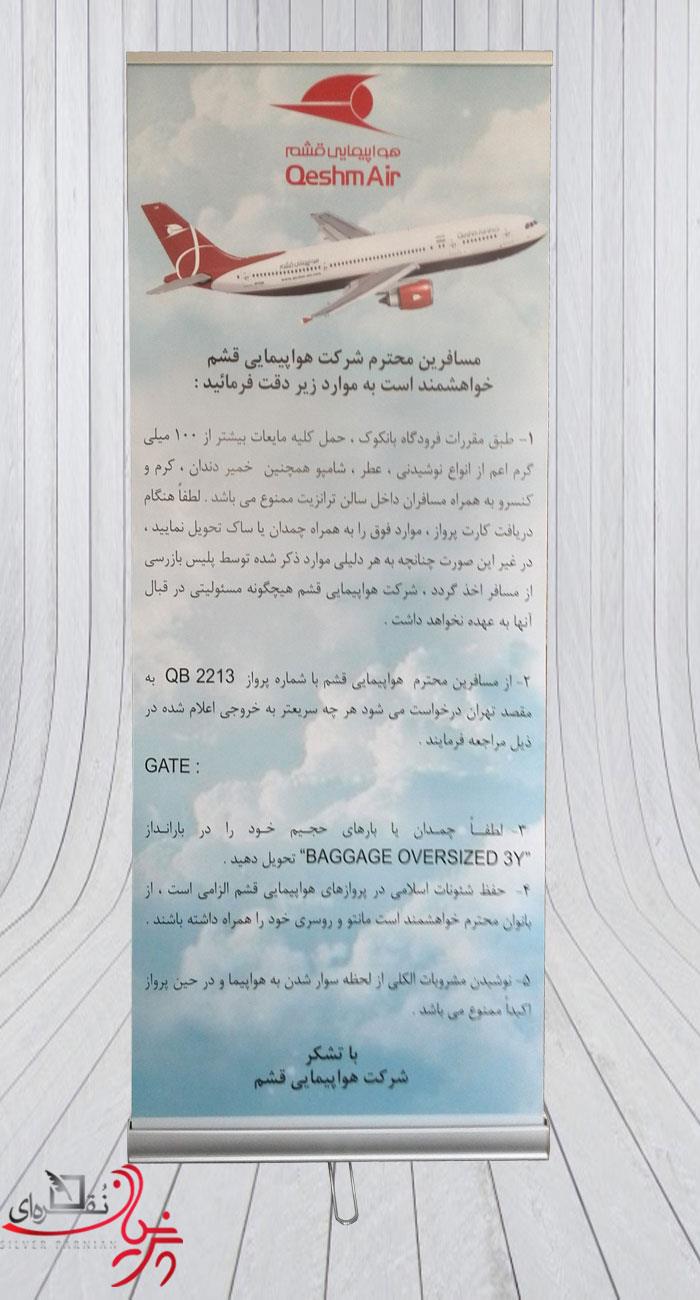 هواپیمایی قشم
QeshmAir
هواپیمایی قشم
مسافرین محترم شرکت هواپیمایی قشم
خواهشمند است به موارد زیر دقت فرمائید :
۱- طبق مقررات فرودگاه بانکوک ، حمل کلیه مایعات بیشتر از ۱۰۰ میلی
گرم اعم از انواع نوشیدنی ، عطر ، شامپو همچنین خمیر دندان ، کرم و
کنسرو به همراه مسافران داخل سالن ترانزیت ممنوع می باشد . لطفاً هنگام
دریافت کارت پرواز ، موارد فوق را به همراه چمدان یا ساک تحویل نمایید ،
در غیر این صورت چنانچه به هر دلیلی موارد ذکر شده توسط پلیس بازرسی
از مسافر اخذ گردد ، شرکت هواپیمایی قشم هیچگونه مسئولیتی در قبال
آنها به عهده نخواهد داشت .
۲- از مسافرین محترم هواپیمایی قشم با شماره پرواز QB 2213 به
مقصد تهران درخواست می شود هر چه سریعتر به خروجی اعلام شده در
ذیل مراجعه فرمایند .
GATE :
۳- لطفاً چمدان یا بارهای حجیم خود را در بارانداز
"BAGGAGE OVERSIZED 3Y" تحویل دهید .
۴- حفظ شئونات اسلامی در پروازهای هواپیمایی قشم الزامی است ، از
بانوان محترم خواهشمند است مانتو و روسری خود را همراه داشته باشند .
۵- نوشیدن مشروبات الکلی از لحظه سوار شدن به هواپیما و در حین پرواز
اکیداً ممنوع می باشد .
با تشکر
شرکت هواپیمایی قشم
پرنیان نقره‌ای
SILVER PARNIAN